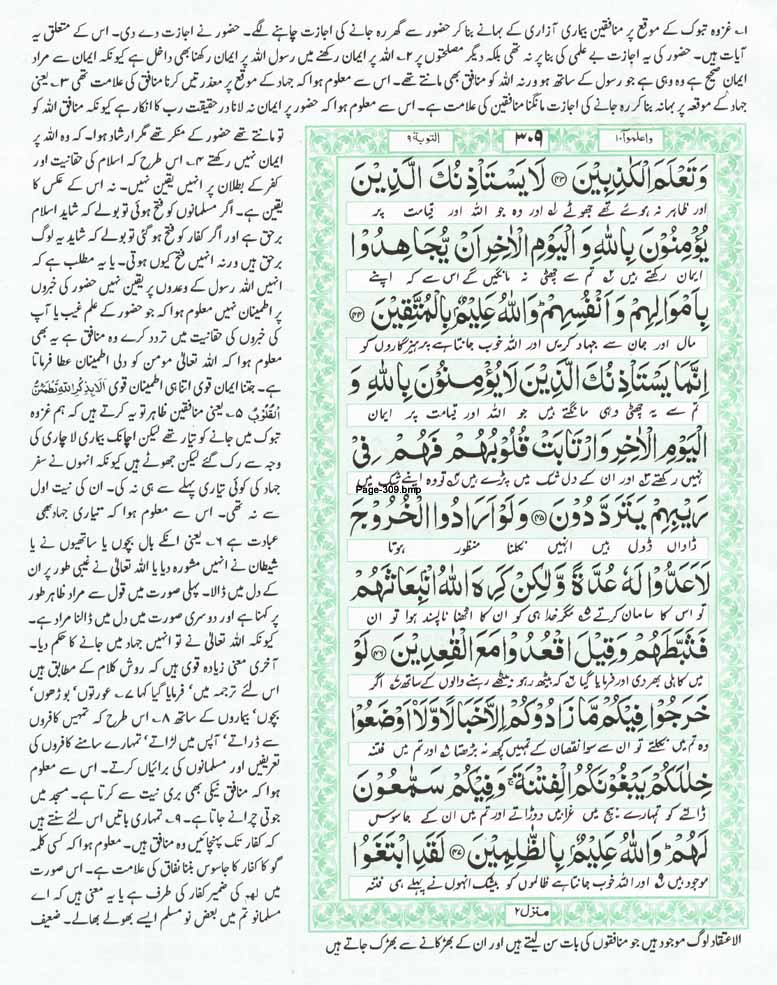 ۱؎ غزوہ تبوک کے موقع پر منافقین بیماری آزاری کے بہانے بنا کر حضور سے گھر رہ جانے کی اجازت چاہنے لگے۔ حضور نے اجازت دے دی۔ اس کے متعلق یہ
آیات ہیں۔ حضور کی یہ اجازت بے علمی کی بنا پر نہ تھی بلکہ دیگر مصلحتوں پر ۲؎ اللہ پر ایمان رکھنے میں رسول اللہ پر ایمان رکھنا بھی داخل ہے کیونکہ ایمان سے مراد
ایمان صحیح ہے وہ وہی ہے جو رسول کے ساتھ ہو ورنہ اللہ کو منافق بھی مانتے تھے۔ اس سے معلوم ہوا کہ جہاد کے موقع پر معذرتیں کرنا منافق کی علامت تھی ۳؎ یعنی
جہاد کے موقعہ پر بہانہ بنا کر رہ جانے کی اجازت مانگنا منافقین کی علامت ہے۔ اس سے معلوم ہوا کہ حضور پر ایمان نہ لانا در حقیقت رب کا انکار ہے کیونکہ منافق اللہ کو
واعلموا ۱۰
۳۰۹
التوبۃ ۹
وَتَعْلَمَ الْكٰذِبِيْنَ ﴿۴۳﴾ لَا يَسْتَاْذِنُكَ الَّذِيْنَ
اور ظاہر نہ ہوئے تھے جھوٹے اور وہ جو اللہ اور قیامت پر
يُؤْمِنُوْنَ بِاللّٰهِ وَالْيَوْمِ الْاٰخِرِ اَنْ يُّجَاهِدُوْا
ایمان رکھتے ہیں تم سے چھٹی نہ مانگیں گے اس سے کہ اپنے
بِاَمْوَالِهِمْ وَاَنْفُسِهِمْ ؕ وَاللّٰهُ عَلِيْمٌۢ بِالْمُتَّقِيْنَ ﴿۴۴﴾
مال اور جان سے جہاد کریں اور اللہ خوب جانتا ہے پرہیزگاروں کو
اِنَّمَا يَسْتَاْذِنُكَ الَّذِيْنَ لَا يُؤْمِنُوْنَ بِاللّٰهِ وَ
تم سے یہ چھٹی وہی مانگتے ہیں جو اللہ اور قیامت پر ایمان
الْيَوْمِ الْاٰخِرِ وَارْتَابَتْ قُلُوْبُهُمْ فَهُمْ فِيْ
نہیں رکھتے اور ان کے دل شک میں پڑے ہیں تو وہ اپنے شک میں
Page-309.bmp
رَيْبِهِمْ يَتَرَدَّدُوْنَ ﴿۴۵﴾ وَلَوْ اَرَادُوا الْخُرُوْجَ
ڈانواں ڈول ہیں انہیں نکلنا منظور ہوتا
لَاَعَدُّوْا لَهٗ عُدَّةً وَّلٰكِنْ كَرِهَ اللّٰهُ انْۢبِعَاثَهُمْ
تو اس کا سامان کرتے مگر خدا ہی کو ان کا اٹھنا ناپسند ہوا تو ان
فَثَبَّطَهُمْ وَقِيْلَ اقْعُدُوْا مَعَ الْقٰعِدِيْنَ ﴿۴۶﴾ لَوْ
میں کاہلی بھر دی اور فرمایا گیا کہ بیٹھ رہو بیٹھے رہنے والوں کے ساتھ اگر
خَرَجُوْا فِيْكُمْ مَّا زَادُوْكُمْ اِلَّا خَبَالًا وَّلَا۟اَوْضَعُوْا
وہ تم میں نکلتے تو ان سے سوا نقصان کے تمہیں کچھ نہ بڑھتا اور تم میں فتنہ
خِلٰلَكُمْ يَبْغُوْنَكُمُ الْفِتْنَةَ ۚ وَفِيْكُمْ سَمّٰعُوْنَ
ڈالنے کو تمہارے بیچ میں غرابیں دوڑاتے اور تم میں ان کے جاسوس
لَهُمْ ؕ وَاللّٰهُ عَلِيْمٌۢ بِالظّٰلِمِيْنَ ﴿۴۷﴾ لَقَدِ ابْتَغَوُا
موجود ہیں اور اللہ خوب جانتا ہے ظالموں کو بیشک انہوں نے پہلے ہی فتنہ
منزل ۲
تو مانتے تھے حضور کے منکر تھے مگر ارشاد ہوا۔ کہ وہ اللہ پر
ایمان نہیں رکھتے ۴؎ اس طرح کہ اسلام کی حقانیت اور
کفر کے بطلان پر انہیں یقین نہیں۔ نہ اس کے عکس کا
یقین ہے۔ اگر مسلمانوں کو فتح ہوئی تو بولے کہ شاید اسلام
برحق ہے اور اگر کفار کو فتح ہو گئی تو بولے کہ شاید یہ لوگ
برحق ہیں ورنہ انہیں فتح کیوں ہوتی۔ یا یہ مطلب ہے کہ
انہیں اللہ رسول کے وعدوں پر یقین نہیں حضور کی خبروں
پر اطمینان نہیں معلوم ہوا کہ جو حضور کے علم غیب یا آپ
کی خبروں کی حقانیت میں تردد کرے وہ منافق ہے یہ بھی
معلوم ہوا کہ اللہ تعالیٰ مومن کو دلی اطمینان عطا فرماتا
ہے۔ جتنا ایمان قوی اتنا ہی اطمینان قوی اَلَا بِذِكْرِ اللّٰهِ تَطْمَئِنُّ
الْقُلُوْبُ ۵؎ یعنی منافقین ظاہر تو یہ کرتے ہیں کہ ہم غزوہ
تبوک میں جانے کو تیار تھے لیکن اچانک بیماری لاچاری کی
وجہ سے رک گئے لیکن جھوٹے ہیں کیونکہ انہوں نے سفر
جہاد کی کوئی تیاری پہلے سے ہی نہ کی۔ ان کی نیت اول
سے نہ تھی۔ اس سے معلوم ہوا کہ تیاری جہاد بھی
عبادت ہے ۶؎ یعنی انکے بال بچوں یا ساتھیوں نے یا
شیطان نے انہیں مشورہ دیا یا اللہ تعالیٰ نے غیبی طور پر ان
کے دل میں ڈالا۔ پہلی صورت میں قول سے مراد ظاہر طور
پر کہنا ہے اور دوسری صورت میں دل میں ڈالنا مراد ہے۔
کیونکہ اللہ تعالیٰ نے تو انہیں جہاد میں جانے کا حکم دیا۔
آخری معنی زیادہ قوی ہیں کہ روش کلام کے مطابق ہیں
اس لئے ترجمہ میں' فرمایا گیا کہا ۷؎ عورتوں' بوڑھوں'
بچوں' بیماروں کے ساتھ ۸؎ اس طرح کہ تمہیں کافروں
سے ڈراتے' آپس میں لڑاتے' تمہارے سامنے کافروں کی
تعریفیں اور مسلمانوں کی برائیاں کرتے۔ اس سے معلوم
ہوا کہ منافق نیکی بھی بری نیت سے کرتا ہے۔ مسجد میں
جوتی چرانے جاتا ہے۔ ۹؎ تمہاری باتیں اس لئے سنتے ہیں
کہ کفار تک پہنچائیں وہ منافق ہیں۔ معلوم ہوا کہ کسی کلمہ
گو کا کفار کا جاسوس بننا نفاق کی علامت ہے۔ اس صورت
میں لهم کی ضمیر کفار کی طرف ہے یا یہ معنی ہیں کہ اے
مسلمانو تم میں بعض نو مسلم ایسے بھولے بھالے۔ ضعیف
الاعتقاد لوگ موجود ہیں جو منافقوں کی بات سن لیتے ہیں اور ان کے بھڑکانے سے بھڑک جاتے ہیں